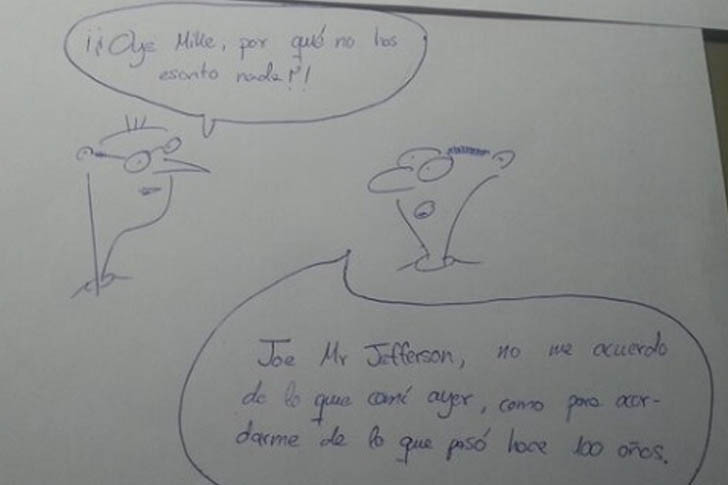 ¡¡Oye Mike, por qué no has
escrito nada!?!
Joe Mr Jefferson, no me acuerdo
de lo que comí ayer, como para acor-
darme de lo que pasó hace 100 años.